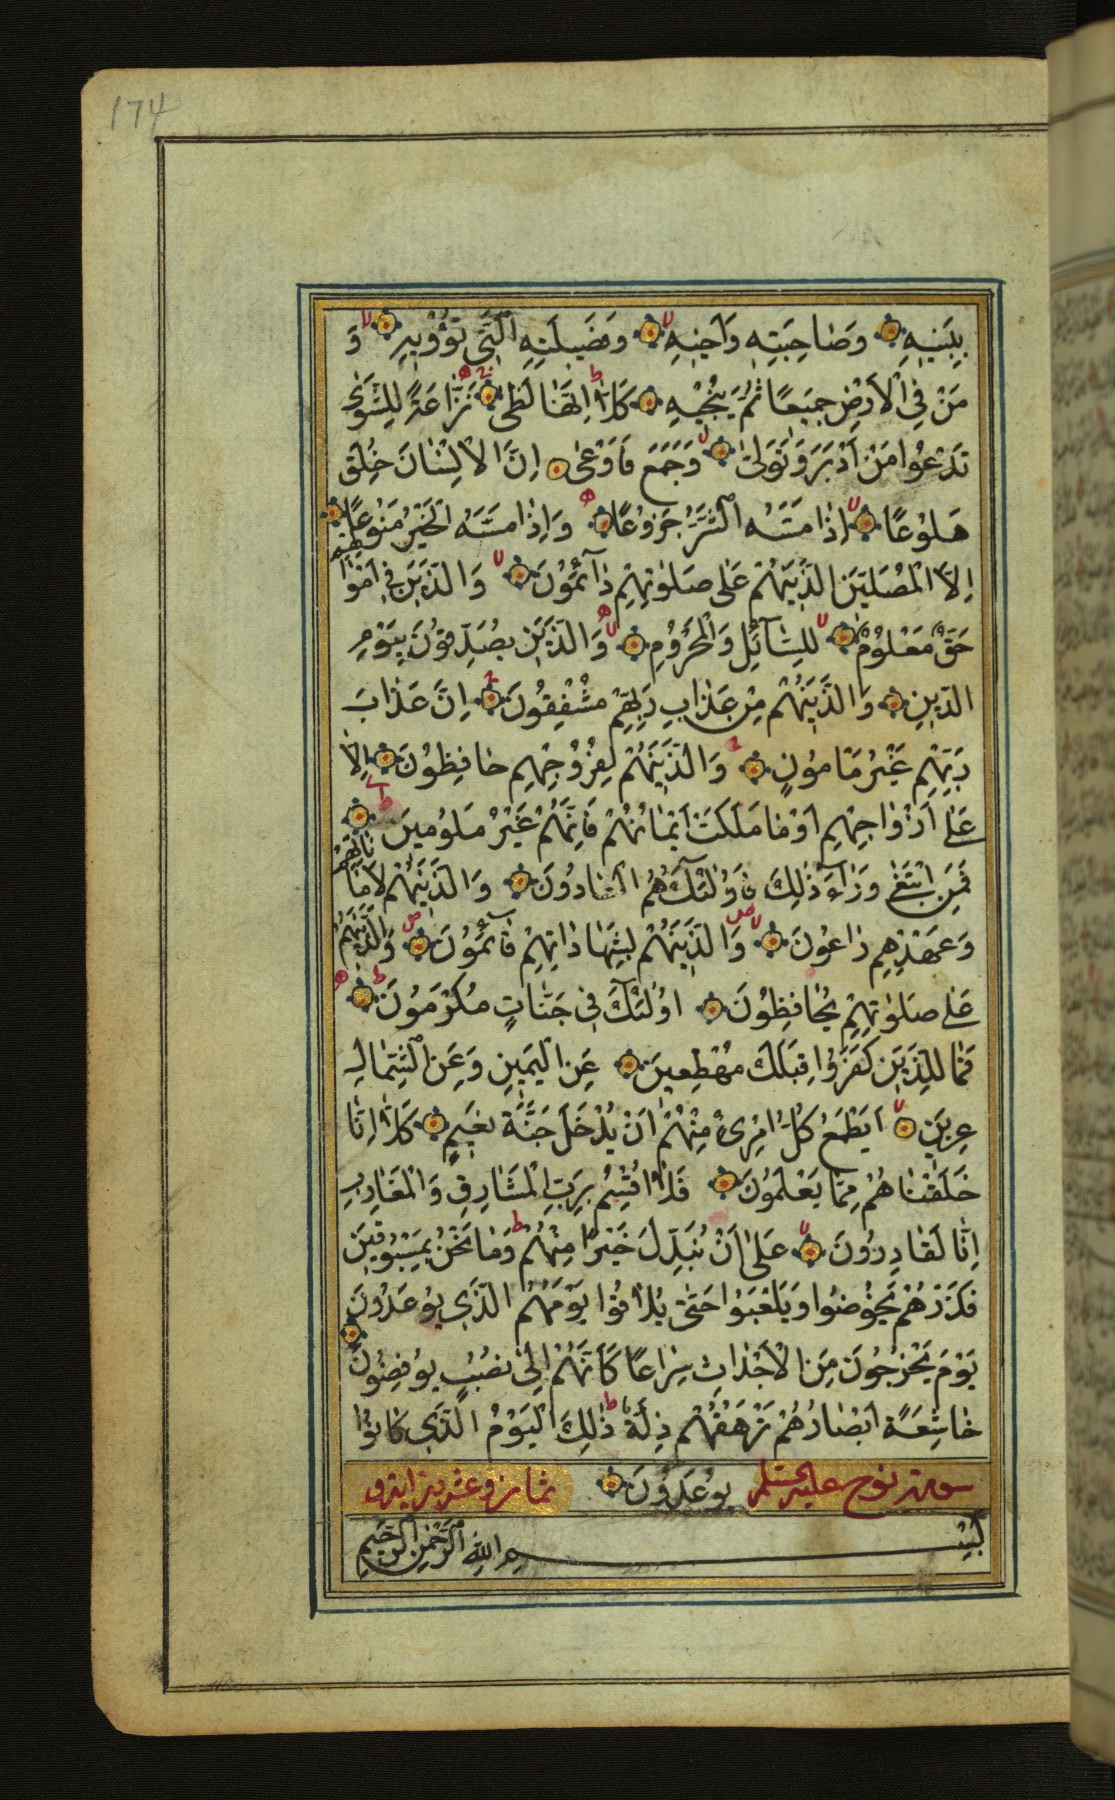 174
بِبَنِيهِ وَصَاحِبَتِهِ وَاَخِيهِ وَفَصِيلَتِهِ الَّتِي تُؤْوِيهِ وَ
مَنْ فِي الْاَرْضِ جَمِيعًا ثُمَّ يُنْجِيهِ كَلَّا اِنَّهَا لَظٰى نَزَّاعَةً لِلشَّوٰى
تَدْعُوا مَنْ اَدْبَرَ وَتَوَلّٰى وَجَمَعَ فَاَوْعٰى اِنَّ الْاِنْسَانَ خُلِقَ
هَلُوعًا اِذَا مَسَّهُ الشَّرُّ جَزُوعًا وَاِذَا مَسَّهُ الْخَيْرُ مَنُوعًا
اِلَّا الْمُصَلِّينَ الَّذِينَهُمْ عَلٰى صَلٰوتِهِمْ دَآئِمُونَ وَالَّذِينَ فِي اَمْوَالِهِمْ
حَقٌّ مَعْلُومٌ لِلسَّآئِلِ وَالْمَحْرُومِ وَالَّذِينَ يُصَدِّقُونَ بِيَوْمِ
الدِّينِ وَالَّذِينَهُمْ مِنْ عَذَابِ رَبِّهِمْ مُشْفِقُونَ اِنَّ عَذَابَ
رَبِّهِمْ غَيْرُ مَاْمُونٍ وَالَّذِينَهُمْ لِفُرُوجِهِمْ حَافِظُونَ اِلَّا
عَلٰى اَزْوَاجِهِمْ اَوْ مَا مَلَكَتْ اَيْمَانُهُمْ فَاِنَّهُمْ غَيْرُ مَلُومِينَ
فَمَنِ ابْتَغٰى وَرَآءَ ذٰلِكَ فَاُولٰئِكَ هُمُ الْعَادُونَ وَالَّذِينَهُمْ لِاَمَانَاتِهِمْ
وَعَهْدِهِمْ رَاعُونَ وَالَّذِينَهُمْ بِشَهَادَاتِهِمْ قَآئِمُونَ وَالَّذِينَهُمْ
عَلٰى صَلٰوتِهِمْ يُحَافِظُونَ اُولٰئِكَ فِي جَنَّاتٍ مُكْرَمُونَ
فَمَا لِلَّذِينَ كَفَرُوا قِبَلَكَ مُهْطِعِينَ عَنِ الْيَمِينِ وَعَنِ الشِّمَالِ
عِزِينَ اَيَطْمَعُ كُلُّ امْرِئٍ مِنْهُمْ اَنْ يُدْخَلَ جَنَّةَ نَعِيمٍ كَلَّا اِنَّا
خَلَقْنَاهُمْ مِمَّا يَعْلَمُونَ فَلَا اُقْسِمُ بِرَبِّ الْمَشَارِقِ وَالْمَغَارِبِ
اِنَّا لَقَادِرُونَ عَلٰى اَنْ نُبَدِّلَ خَيْرًا مِنْهُمْ وَمَا نَحْنُ بِمَسْبُوقِينَ
فَذَرْهُمْ يَخُوضُوا وَيَلْعَبُوا حَتّٰى يُلَاقُوا يَوْمَهُمُ الَّذِي يُوعَدُونَ
يَوْمَ يَخْرُجُونَ مِنَ الْاَجْدَاثِ سِرَاعًا كَاَنَّهُمْ اِلٰى نُصُبٍ يُوفِضُونَ
خَاشِعَةً اَبْصَارُهُمْ تَرْهَقُهُمْ ذِلَّةٌ ذٰلِكَ الْيَوْمُ الَّذِي كَانُوا
سورة نوح عليه السلام يُوعَدُونَ ثمان وعشرين اية
بِسْمِ اللّٰهِ الرَّحْمٰنِ الرَّحِيمِ